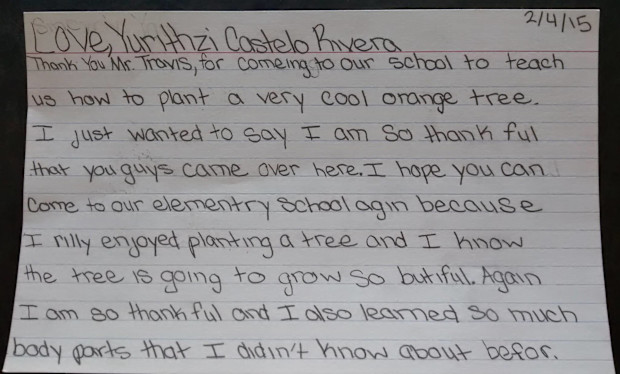 2/4/15
Love, Yurithzi Castelo Rivera
Thank You Mr. Travis, for comeing to our school to teach
us how to plant a very cool orange tree.
I just wanted to say I am so thank ful
that you guys came over here. I hope you can
come to our elementry school agin because
I rilly enjoyed planting a tree and I know
the tree is going to grow so butiful. Again
I am so thank ful and I also learned so much
body parts that I didin't know about befor.